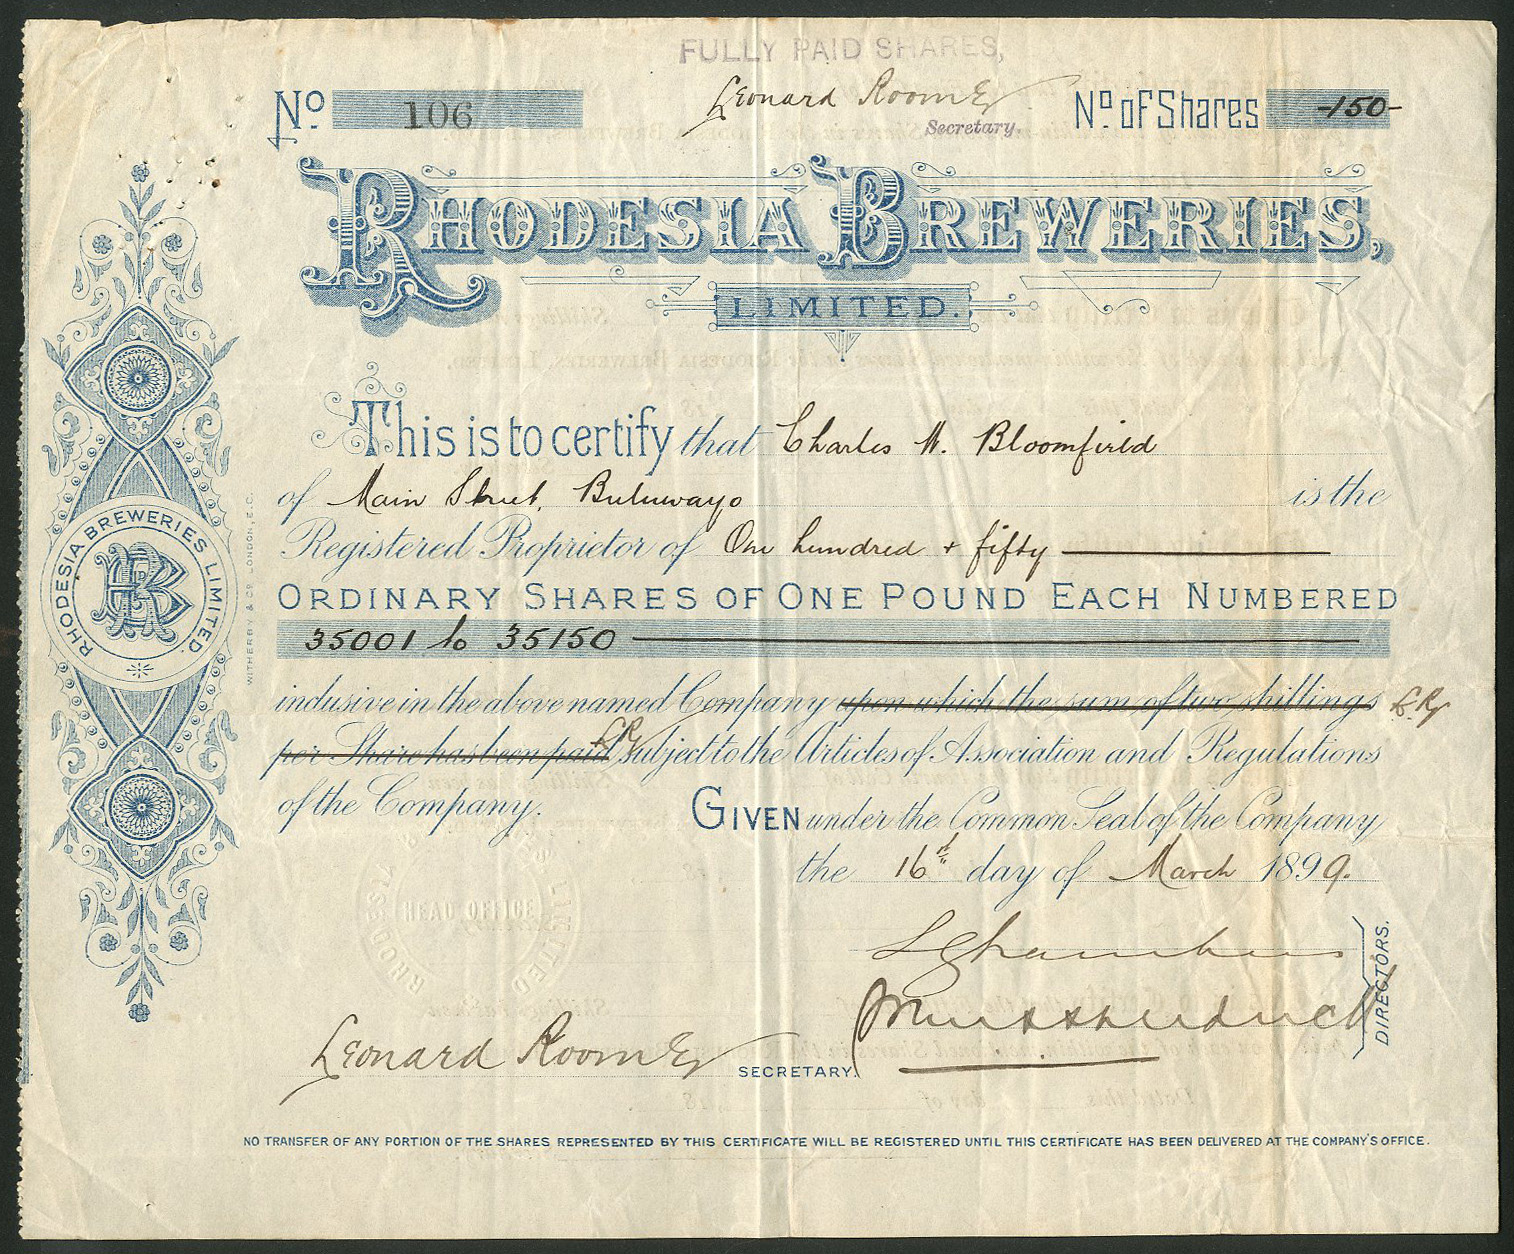 FULLY PAID SHARES,
No 106
Leonard
Secretary.
No of Shares -150-
RHODESIA BREWERIES,
LIMITED.
This is to certify that Charles W. Bloomfield
of Main Street, Buluwayo is the
Registered Proprietor of One hundred + fifty
ORDINARY SHARES OF ONE POUND EACH NUMBERED
35001 to 35150
inclusive in the above named Company upon which the sum of two shillings L.R
per Share has been paid LR subject to the Articles of Association and Regulations
of the Company. GIVEN under the Common Seal of the Company
the 16th day of March 1899.
DIRECTORS.
Leonard
SECRETARY.
NO TRANSFER OF ANY PORTION OF THE SHARES REPRESENTED BY THIS CERTIFICATE WILL BE REGISTERED UNTIL THIS CERTIFICATE HAS BEEN DELIVERED AT THE COMPANY'S OFFICE.
RHODESIA BREWERIES LIMITED.
WITHERBY & CO. LONDON, E.C.
RHODESIA LIMITED
HEAD OFFICE